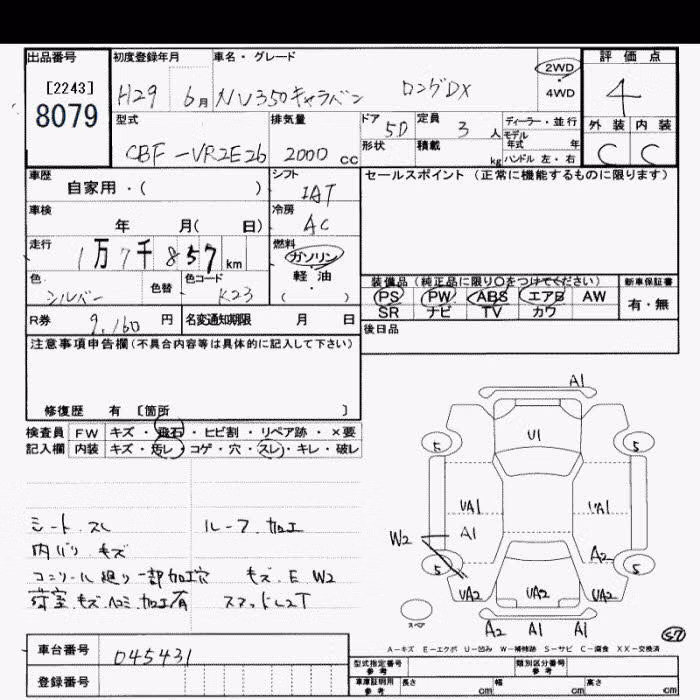 出品番号 初度登録年月 車名・グレード 評価点
[2243] H29 6月 NV350キャラバン ロングDX 2WD 4
8079 4WD
型式 排気量 ドア 5D 定員 3人 ディーラー・並行 外装 内装
CBF-VR2E26 2000cc 形状 積載 kg モデル年式 年 C C
ハンドル 左・右
車歴 シフト セールスポイント (正常に機能するものに限ります)
自家用・( ) IAT
車検 冷房
年 月( 日) AC
走行 燃料
1万7千857km ガソリン
軽・油
( )
色 シルバー 色替 色コード K23
装備品 (純正品に限り○をつけてください) 新車保証書
PS PW ABS エアB AW 有・無
SR ナビ TV カワ
R券 9,160円 名変通知期限 月 日 後日品
注意事項申告欄(不具合内容等は具体的に記入して下さい)
修復歴 有 [箇所 ]
検査員 FW キズ・飛石・ヒビ割・リペア跡・×要
記入欄 内装 キズ・汚レ・コゲ・穴・スレ・キレ・破レ
シート スレ ルーフ 加工
内バリ キズ
廻り一部加工穴 キズ E W2
荷室 キズ ヘコミ 加工有
A1
U1
5 5
UA1 A1
A1
W2 A2
5 5
UA2 UA2 UA2
スペア
A2 A1 A1
57
A-キズ E-エクボ U-凹み W-補修跡 S-サビ C-腐食 XX-交換済
車台番号 045431 型式指定番号 参考 類別区分番号 参考
登録番号 車庫証明用 参考 長さ cm 幅 cm 高さ cm